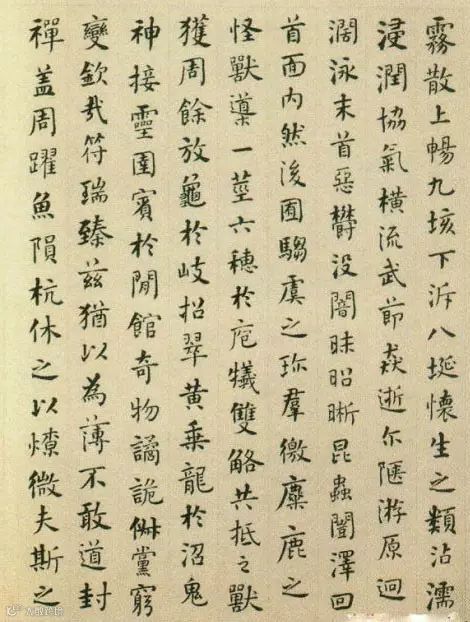 霧散上暢九垓下泝八埏懷生之類沾濡
浸潤協氣橫流武節焱逝尔陿游原迥
濶泳末首惡欝没闇昧昭晰昆蟲闓澤回
首面内然後囿騶虞之珎羣徼麋鹿之
怪獸導一莖六穗於庖犧雙觡共抵之獸
獲周餘放龜於岐招翠黄乗龍於沼鬼
神接靈圉賓於閒館奇物譎詭俶黨窮
變欽哉符瑞臻兹猶以為薄不敢道封
禪盖周躍魚隕杭休之以燎微夫斯之